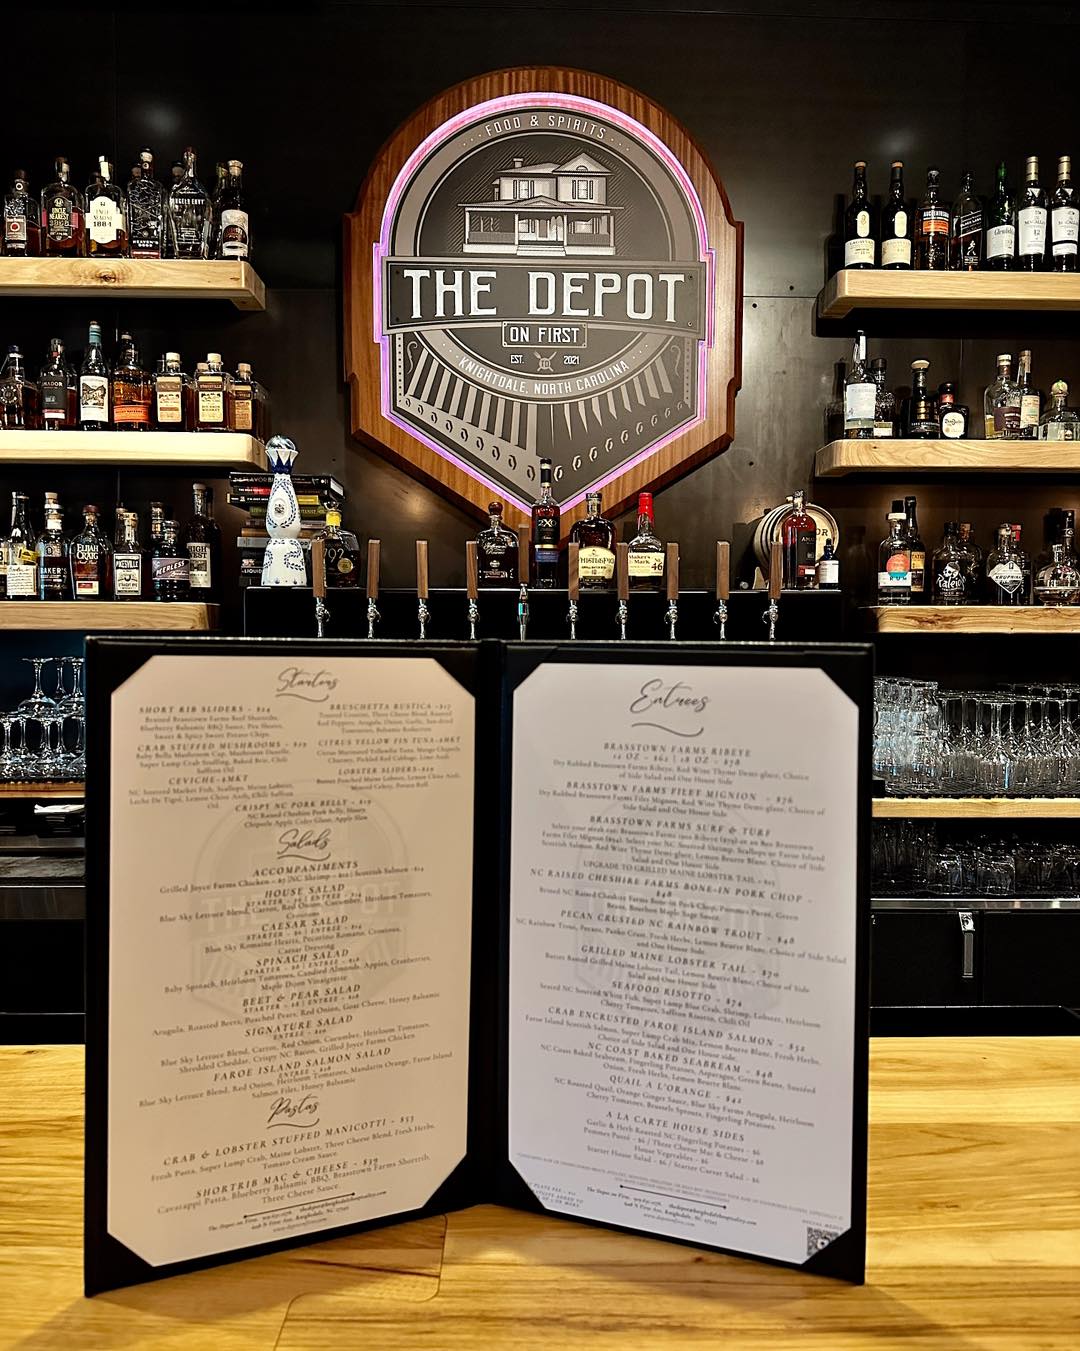 FOOD & SPIRITS
THE DEPOT
ON FIRST
EST. 2021
KNIGHTDALE, NORTH CAROLINA
UNCLE NEAREST
1884
ELIJAH CRAIG
PIKESVILLE
PEERLESS
BAKER'S
1792
Maker's Mark
46
Starters
SHORT RIB SLIDERS - $24
Braised Brasstown Farms Beef Shortribs,
Blueberry Balsamic BBQ Sauce, Pea Shoots,
Sweet & Spicy Sweet Potato Chips
CRAB STUFFED MUSHROOMS - $19
Baby Bella Mushroom Cap, Mushroom Duxelle,
Super Lump Crab Stuffing, Baked Brie, Chili
Saffron Oil
CEVICHE -$MKT
NC Sourced Market Fish, Scallops, Maine Lobster,
Leche De Tigre, Lemon Chive Aioli, Chili Saffron
Oil
BRUSCHETTA RUSTICA -$17
Toasted Crostini, Three Cheese Blend, Roasted
Red Peppers, Arugula, Onion, Garlic, Sun-dried
Tomatoes, Balsamic Reduction
CITRUS YELLOW FIN TUNA-$MKT
Citrus Marinated Yellowfin Tuna, Mango Chipotle
Chutney, Pickled Red Cabbage, Lime Aioli
LOBSTER SLIDERS-$29
Butter Poached Maine Lobster, Lemon Chive Aioli,
Minced Celery, Potato Roll
CRISPY NC PORK BELLY - $19
NC Raised Cheshire Pork Belly, Honey
Chipotle Apple Cider Glaze, Apple Slaw
Salads
ACCOMPANIMENTS
Grilled Joyce Farms Chicken - $7 |NC Shrimp - $12| Scottish Salmon -$14
HOUSE SALAD
STARTER - $6 | ENTREE - $14
Blue Sky Lettuce Blend, Carrot, Red Onion, Cucumber, Heirloom Tomatoes,
Croutons
CAESAR SALAD
STARTER - $6 | ENTREE - $14
Blue Sky Romaine Hearts, Pecorino Romano, Croutons,
Caesar Dressing
SPINACH SALAD
STARTER - $8 | ENTREE - $18
Baby Spinach, Heirloom Tomatoes, Candied Almonds, Apples, Cranberries,
Maple Dijon Vinaigrette
BEET & PEAR SALAD
STARTER - $8 | ENTREE - $18
Arugula, Roasted Beets, Poached Pears, Red Onion, Goat Cheese, Honey Balsamic
SIGNATURE SALAD
ENTREE - $20
Blue Sky Lettuce Blend, Carrot, Red Onion, Cucumber, Heirloom Tomatoes,
Shredded Cheddar, Crispy NC Bacon, Grilled Joyce Farms Chicken
FAROE ISLAND SALMON SALAD
ENTREE - $28
Blue Sky Lettuce Blend, Red Onion, Heirloom Tomatoes, Mandarin Orange, Faroe Island
Salmon Filet, Honey Balsamic
Pastas
CRAB & LOBSTER STUFFED MANICOTTI - $53
Fresh Pasta, Super Lump Crab, Maine Lobster, Three Cheese Blend, Fresh Herbs,
Tomato Cream Sauce.
SHORTRIB MAC & CHEESE - $39
Cavatappi Pasta, Blueberry Balsamic BBQ, Brasstown Farms Shortrib,
Three Cheese Sauce.
The Depot on First
608 N First Ave, Knightdale, NC 27545
Entrees
BRASSTOWN FARMS RIBEYE
12 OZ - $62 | 18 OZ - $78
Dry Rubbed Brasstown Farms Ribeye, Red Wine Thyme Demi-glace, Choice
of Side Salad and One House Side
BRASSTOWN FARMS FILET MIGNION - $76
Dry Rubbed Brasstown Farms Filet Mignon, Red Wine Thyme Demi-glace, Choice of
Side Salad and One House Side
BRASSTOWN FARMS SURF & TURF
Select your steak cut: Brasstown Farms 12oz Ribeye ($79) or an 8oz Brasstown
Farms Filet Mignon ($94). Select your NC Sourced Shrimp, Scallops or Faroe Island
Scottish Salmon. Red Wine Thyme Demi-glace, Lemon Beurre Blanc. Choice of Side
Salad and One House Side
UPGRADE TO GRILLED MAINE LOBSTER TAIL - $25
NC RAISED CHESHIRE FARMS BONE-IN PORK CHOP -
$48
Brined NC Raised Cheshire Farms Bone-in Pork Chop, Pommes Pureé, Green
Beans, Bourbon Maple Sage Sauce.
PECAN CRUSTED NC RAINBOW TROUT - $48
NC Rainbow Trout, Pecans, Panko Crust, Fresh Herbs, Lemon Beurre Blanc, Choice of Side Salad
and One House Side.
GRILLED MAINE LOBSTER TAIL - $70
Butter Basted Grilled Maine Lobster Tail, Lemon Beurre Blanc, Choice of Side
Salad and One House Side
SEAFOOD RISOTTO - $74
Seared NC Sourced White Fish, Super Lump Blue Crab, Shrimp, Lobster, Heirloom
Cherry Tomatoes, Saffron Risotto, Chili Oil
CRAB ENCRUSTED FAROE ISLAND SALMON - $52
Faroe Island Scottish Salmon, Super Lump Crab Mix, Lemon Beurre Blanc, Fresh Herbs,
Choice of Side Salad and One House side.
NC COAST BAKED SEABREAM - $48
NC Coast Baked Seabream, Fingerling Potatoes, Asparagus, Green Beans, Sautéed
Onion, Fresh Herbs, Lemon Beurre Blanc.
QUAIL A L'ORANGE - $42
NC Roasted Quail, Orange Ginger Sauce, Blue Sky Farms Arugula, Heirloom
Cherry Tomatoes, Brussels Sprouts, Fingerling Potatoes.
A LA CARTE HOUSE SIDES
Garlic & Herb Roasted NC Fingerling Potatoes - $6
Pommes Pureé - $6 / Three Cheese Mac & Cheese - $8
House Vegetables - $6
Starter House Salad - $6 / Starter Caesar Salad - $6
The Depot on First
608 N First Ave, Knightdale, NC 27545
SOCIAL MEDIA